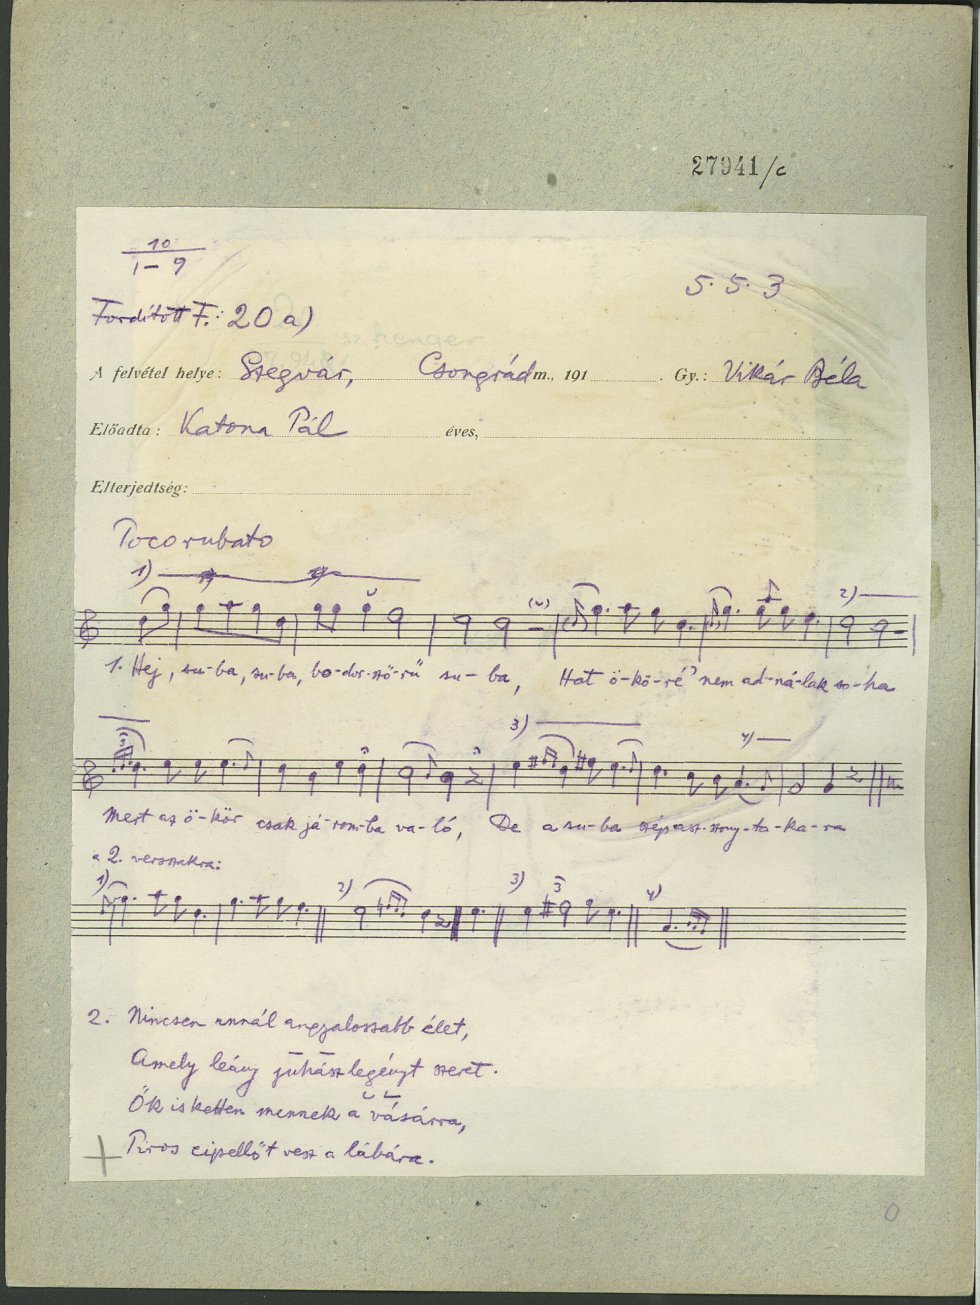 27941/c
10
1 – 9
5. 5. 3
Fordított F.: 20 a)
A felvétel helye: Szegvár, Csongrád m., 191 . Gy.: Vikár Béla
Előadta: Katona Pál éves,
Elterjedtség:
Poco rubato
1)
2)
1. Hej, su-ba, su-ba, bo-dor-szö-rű su-ba, Hat ö-kö-ré' nem ad-ná-lak so-ha
3) 4)
Mert az ö-kör csak já-rom-ba va-ló, De a su-ba szép asz-szony-ta-ka-ra
a 2. versszakra:
1) 2) 3) 3 4)
2. Nincsen annál angyalossabb élet,
Amely leány juhászlegényt szeret.
Ők is ketten mennek a vásárra,
Piros cipellőt vesz a lábára.
0